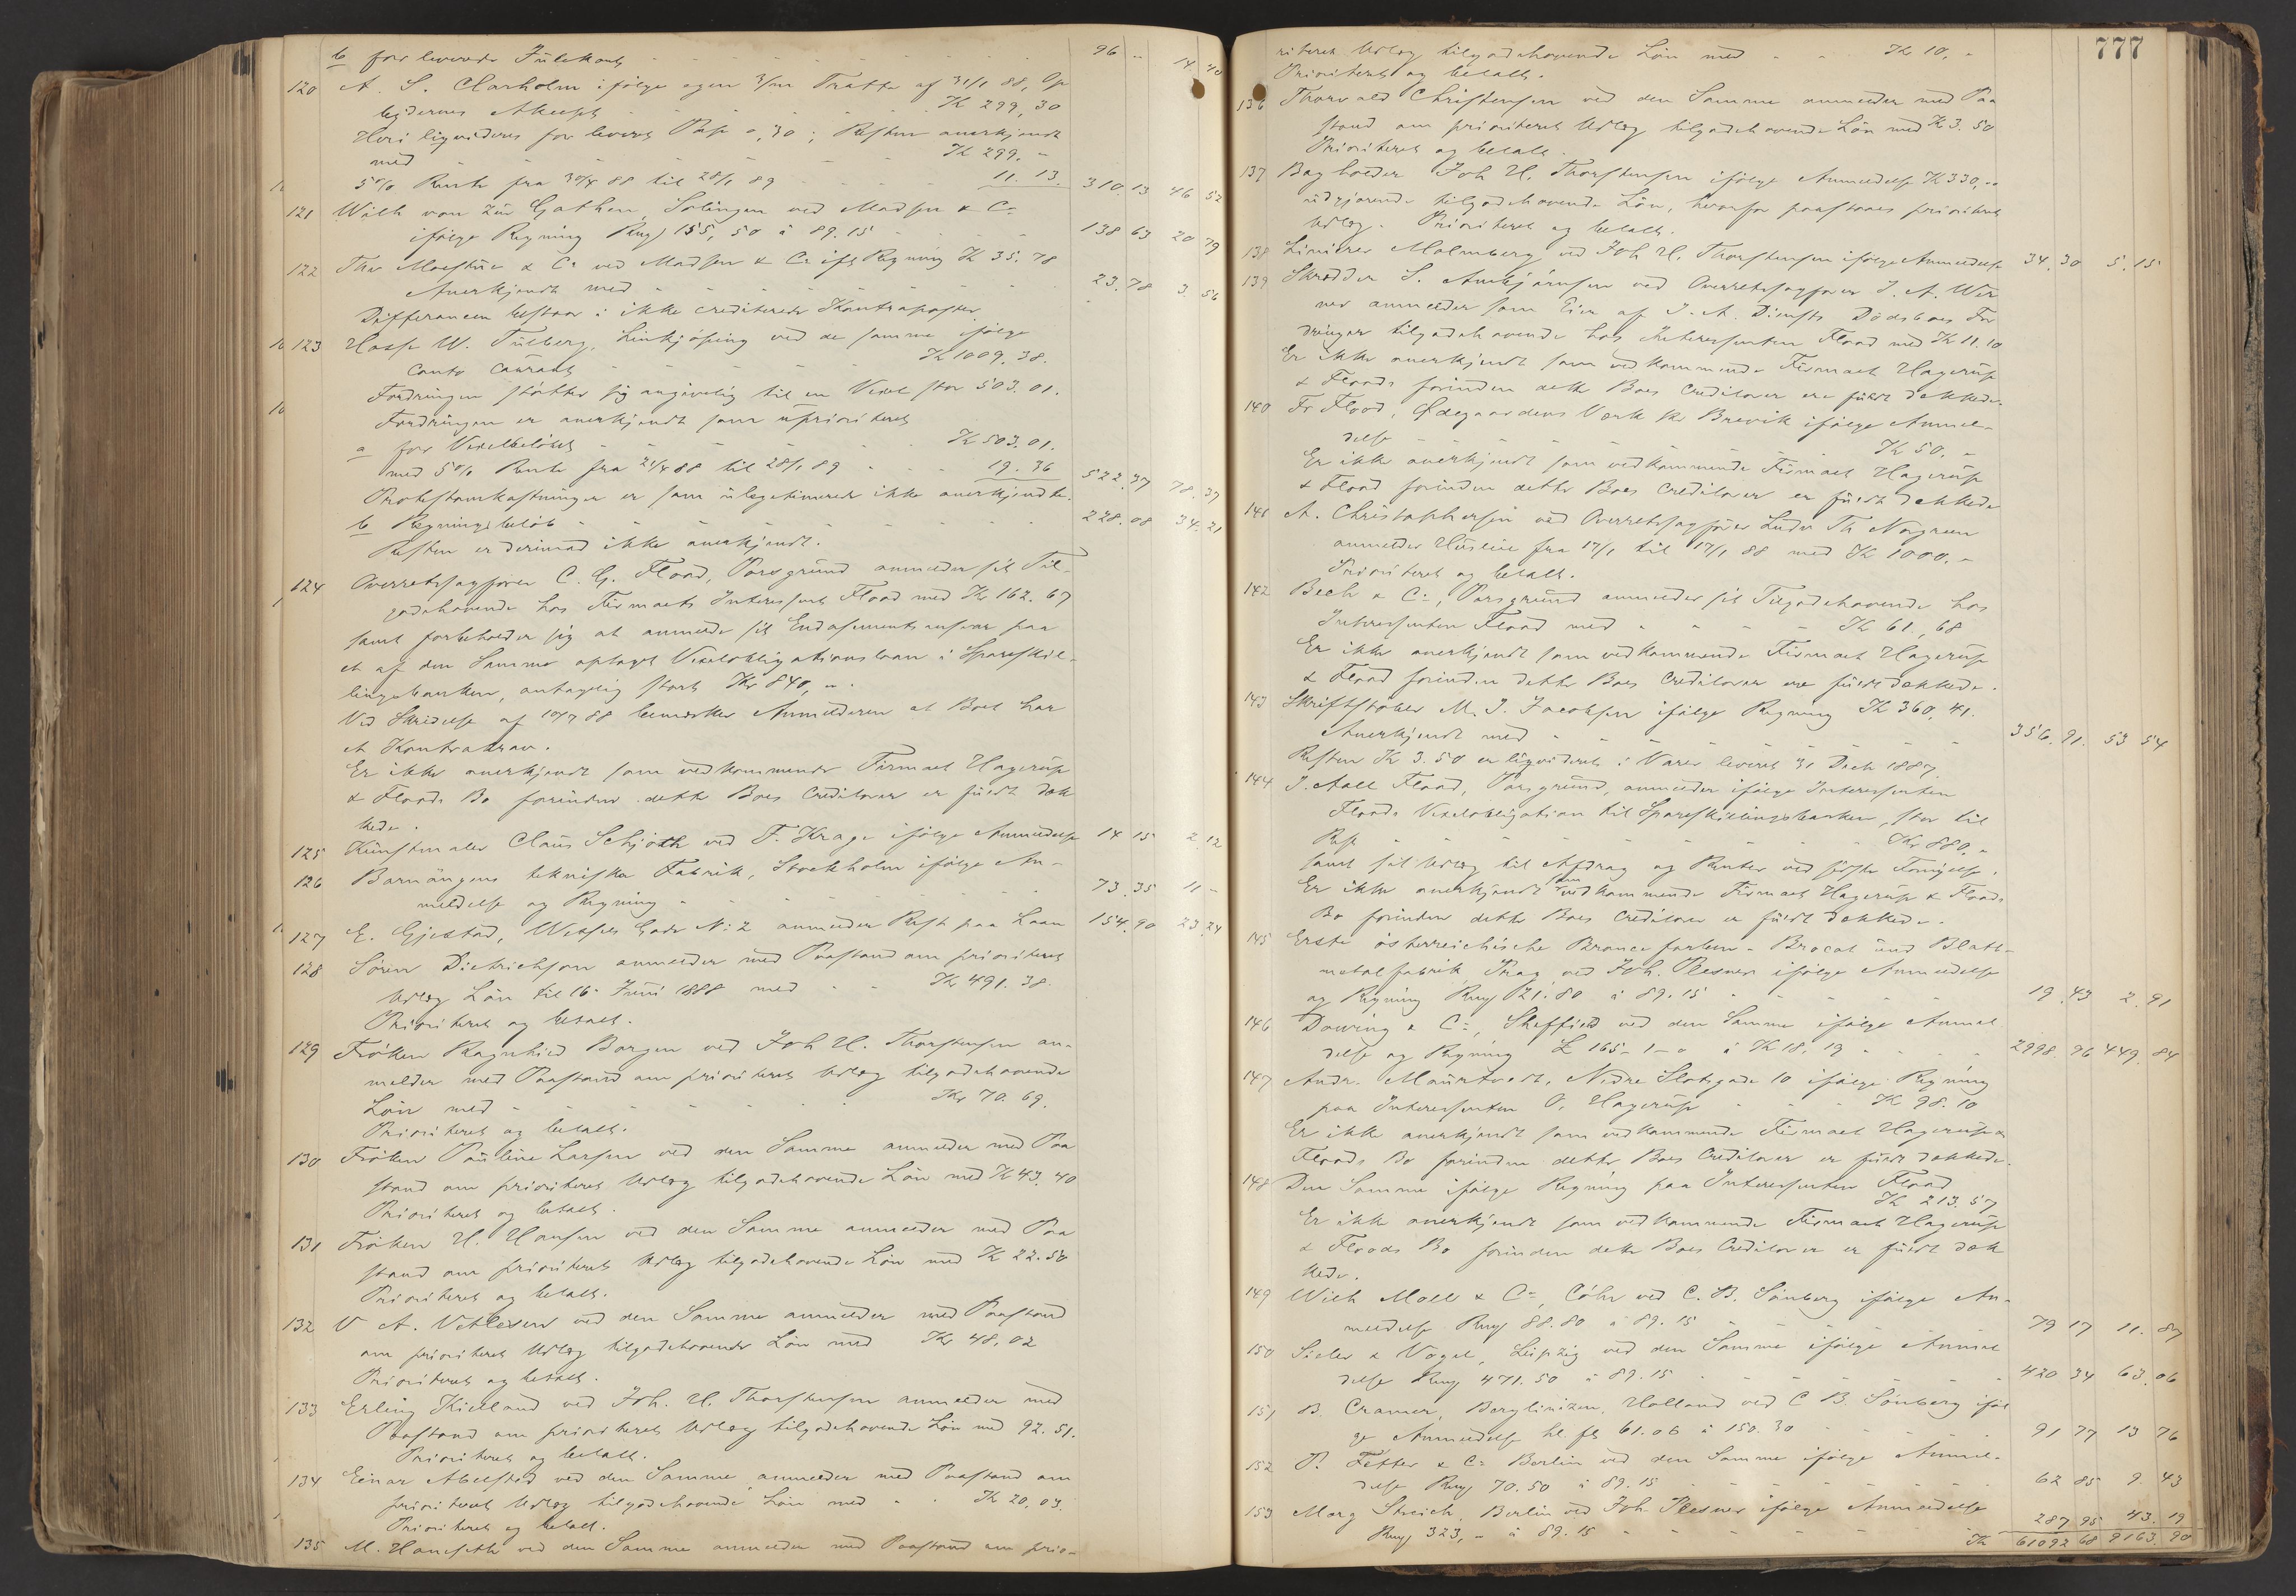 b for leverede Julekort - - - 96 " 14 40
120 A. S. Clarholm ifølge egen 3/m Tratte af 31/1 88, Op
bydernes Accept - - - Kr 299,30
Heri ligvideres for leveret Pap 0,30; Resten anerkjendt
med - - - Kr 299,-
5% Rente fra 30/4 88 til 28/1 89 - - - 11.13. 310 13 46 52
121 Wilh von zür Gathen, Solingen ved Madsen & Co
ifølge Regning Rmf 155,50 à 89.15 - - - 138 63 20 79
122 Thv Moestue & Co ved Madsen & Co ifl Regning Kr 35.78
Anerkjendt med - - - 23.78 3.56
Differancen bestaar i ikke crediterede Kontraposter.
123 Hasse W. Tullberg, Linkjöping ved de samme ifølge
Conto Courant - - - Kr 1009.38.
Fordringen støtter sig angivelig til en Vexel stor 503.01.
Fordringen er anerkjendt som uprioriteret
a for Vexelbeløbet - - - Kr 503.01.
med 5% Rente fra 21/4 88 til 28/1 89 - - - 19.36 522.37 78.37
Protestomkostninger er som ulegetimerede ikke anerkjendte.
b Regningsbeløb - - - 228.08 34.21
Resten er derimod ikke anerkjendt.
124 Overretssagfører C. G. Flood, Porsgrund anmelder sit Til-
godehavende hos Firmaets Interessent Flood med Kr 162.67
samt forbeholder sig at anmelde sit Endosementsansvar paa
et af den Samme optaget Vexelobligationslaan i Spareskil-
lingsbanken, antagelig stort Kr 840,-.
Ved Skrivelse af 10/7 88 bemærker Anmelderen at Boet har
et Kontrakrav.
Er ikke anerkjendt som vedkommende Firmaet Hagerup
& Floods Bo forinden dette Boes Creditorer er fuldt dæk
kede.
125 Kunstmaler Claus Schjøth ved F. Krage ifølge Anmeldelse 14 15 2.12
126 Barnängens tekniska Fabrik, Stockholm ifølge An-
meldelse og Regning - - - 73.35 11 -
127 E. Gjestad, Wessels Gade No 2 anmelder Rest paa Laan 154.90 23.24
128 Søren Dietrichson anmelder med Paastand om prioriteret
Udlæg Løn til 16- Juni 1888 med - - Kr 491.38.
Prioriteret og betalt.
129 Frøken Ragnhild Borgen ved Joh H. Thorstensen an-
melder med Paastand om prioriteret Udlæg tilgodehavende
Løn med - - - Kr 70.69.
Prioriteret og betalt.
130 Frøken Pauline Larsen ved den Samme anmelder med Paa
stand om prioriteret Udlæg tilgodehavende Løn med Kr 43.40
Prioriteret og betalt.
131 Frøken H. Hansen ved den Samme anmelder med Paa
stand om prioriteret Udlæg tilgodehavende Løn med Kr 22.50
Prioriteret og betalt.
132 V A. Vetlesen ved den Samme anmelder med Paastand
om prioriteret Udlæg tilgodehavende Løn med Kr 48,02
Prioriteret og betalt.
133 Erling Kielland ved Joh. H. Thorstensen anmelder med
Paastand om prioriteret Udlæg tilgodehavende Løn med 92.51.
Prioriteret og betalt.
134 Einar Abelsted ved den Samme anmelder med Paastand om
prioriteret Udlæg tilgodehavende Løn med - - Kr 20.03.
Prioriteret og betalt.
135 M. Hanseth ved den Samme anmelder med Paastand om prio-
777
riteret Udlæg tilgodehavende Løn med - - Kr 10,-
Prioriteret og betalt.
136 Thorvald Christensen ved den Samme anmelder med Paa
stand om prioriteret Udlæg tilgodehavende Løn med Kr 3.50
Prioriteret og betalt.
137 Bogholder Joh H. Thorstensen ifølge Anmeldelse Kr 330,-
udgjørende tilgodehavende Løn, hvorfor paastaaes prioriteret
Udlæg. Prioriteret og betalt.
138 Linierer Malmberg ved Joh H. Thorstensen ifølge Anmeldelse 34.30 5.15
139 Skrædder S. Anbjørnsen ved Overretssagfører J. A. Wer
ner anmelder som Eier af J. A. Diensts Dødsboes For
dringer tilgodehavende hos Interessenten Flood med Kr 11.10
Er ikke anerkjendt som vedkommende Firmaet Hagerup
& Floods forinden dette Boes Creditorer ere fuldt dækkede.
140 Fr Flood, Ødegaardens Værk pr Brevik ifølge Anmel-
delse - - - Kr 50,-
Er ikke anerkjendt som vedkommende Firmaet Hagerup
& Flood forinden dette Boes Creditorer er fuldt dækkede
141 A. Christophersen ved Overretssagfører Ludv Th Norgreen
anmelder Husleie fra 17/1 til 17/7 88 med Kr 1000.-
Prioriteret og betalt.
142 Bech & Co, Porsgrund anmelder sit Tilgodehavende hos
Interessenten Flood med - - - Kr 61,68
Er ikke anerkjendt som vedkommende Firmaet Hagerup
& Flood forinden dette Boes Creditorer ere fuldt dækkede.
143 Skriftstøber M. J. Jacobsen ifølge Regning Kr 360,41.
Anerkjendt med - - - 356.91. 53 54
Resten Kr 3.50 er ligvideret i Varer leveret 31 Dech 1887.
144 J. Aall Flood, Porsgrund, anmelder ifølge Interessenten
Floods Vexelobligation til Spareskillingsbanken, stor til
Rest - - - Kr 880,-
samt sit Udlæg til Afdrag og Renter ved sidste Fornyelse.
Er ikke anerkjendt som vedkommende Firmaet Hagerup & Floods
Bo forinden dette Boes Creditorer er fuldt dækkede.
145 Erste österreichische Broncefarben - Brocat und Blatt-
metalfabrik Prag ved Joh. Plesner ifølge Anmeldelse
og Regning Rmf 21.80 à 89.15 - - - 19.43 2.91
146 Dowing & Co, Sheffield ved den Samme ifølge Anmel
delse og Regning £ 165-1-0 à Kr 18.19 - - - 2998.96 449.84
147 Andr. Maurtvedt, Nedre Slotsgade 10 ifølge Regning
paa Interessenten O, Hagerup - - - Kr 98.10
Er ikke anerkjendt som vedkommende Firmaet Hagerup &
Floods Bo forinden dette Boes Creditorer er fuldt dækkede.
148 Den Samme ifølge Regning paa Interessenten Flood
Kr 213.57
Er ikke anerkjendt som vedkommende Firmaet Hagerup
& Floods Bo forinden dette Boes Creditorer er fuldt dæk
kede.
149 Wilh Moll & Co, Cöln ved C. B. Sönberg ifølge An-
meldelse Rmf 88.80 à 89.15 - - - 79 17 11.87
150 Sieler & Vogel, Leipzig ved den Samme ifølge Anmel
delse Rmf 471.50 à 89.15 - - - 420 34 63.06
151 B. Cramer, Holland ved C B. Sönberg iføl
ge Anmeldelse hl. fl 61.06 à 150.30 - - - 91 77 13 76
152 P. Fetter & Co Berlin ved den Samme ifølge Anmel-
delse Rmf 70.50 à 89.15 - - - 62 85 9 43
153 Marg Streich, Berlin ved Joh Plesner ifølge Anmeldelse
Rmf 323,- à 89.15 - - - 287 95 43.19
Kr 61092 68 9163.90